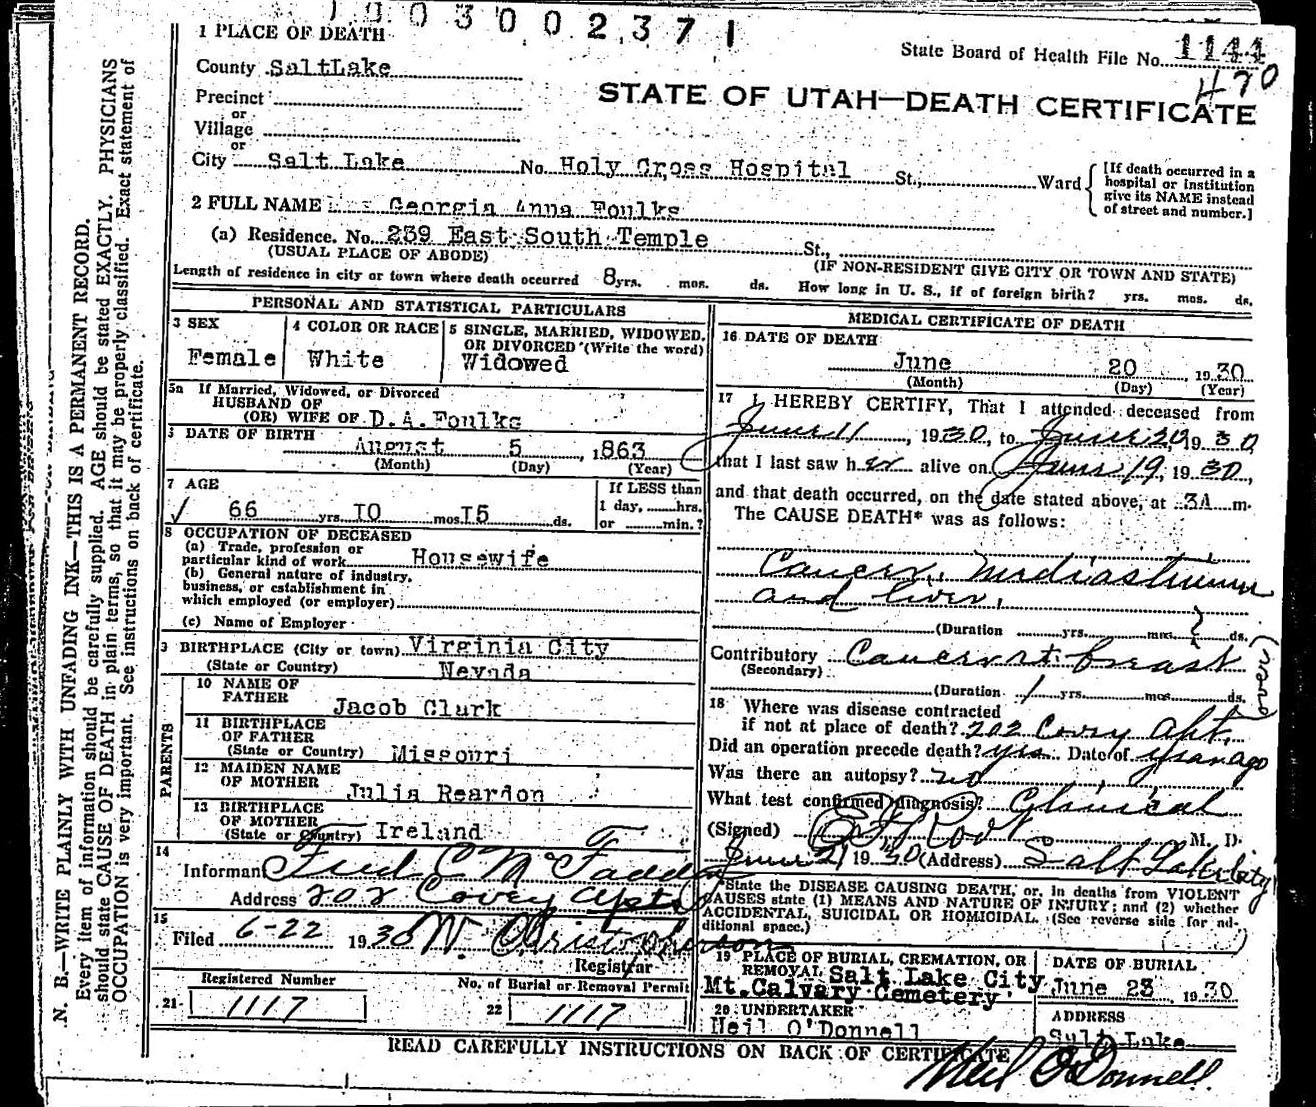 1003002371
1 PLACE OF DEATH
State Board of Health File No. 1144
470
County Salt Lake
STATE OF UTAH—DEATH CERTIFICATE
Precinct
or
Village
or
City Salt Lake No. Holy Cross Hospital St., Ward
[If death occurred in a
hospital or institution
give its NAME instead
of street and number.]
2 FULL NAME Georgia Anna Foulks
(a) Residence. No. 239 East South Temple St.,
(USUAL PLACE OF ABODE) (IF NON-RESIDENT GIVE CITY OR TOWN AND STATE)
Length of residence in city or town where death occurred 8 yrs. mos. ds. How long in U. S., if of foreign birth? yrs. mos. ds.
PERSONAL AND STATISTICAL PARTICULARS
3 SEX 4 COLOR OR RACE 5 SINGLE, MARRIED, WIDOWED,
OR DIVORCED (Write the word)
Female White Widowed
5a If Married, Widowed, or Divorced
HUSBAND OF
(OR) WIFE OF D.A.Foulks
DATE OF BIRTH August 5, 1863
(Month) (Day) (Year)
7 AGE If LESS than
1 day, hrs.
✓ 66 yrs. 10 mos. 15 ds. or min.?
8 OCCUPATION OF DECEASED
(a) Trade, profession or
particular kind of work Housewife
(b) General nature of industry,
business, or establishment in
which employed (or employer)
(c) Name of Employer
9 BIRTHPLACE (City or town) Virginia City
(State or Country) Nevada
PARENTS
10 NAME OF
FATHER Jacob Clark
11 BIRTHPLACE
OF FATHER
(State or Country) Missouri
12 MAIDEN NAME
OF MOTHER Julia Reardon
13 BIRTHPLACE
OF MOTHER
(State or Country) Ireland
14
Informant Fred C McFadden
Address 202 Covey Apts
15
Filed 6-22 1930 W. Christopherson
Registrar
Registered Number No. of Burial or Removal Permit
21 1117 22 1117
MEDICAL CERTIFICATE OF DEATH
16 DATE OF DEATH
June 20 1930
(Month) (Day) (Year)
17 I HEREBY CERTIFY, That I attended deceased from
June 11, 1930, to June 20, 1930,
that I last saw her alive on June 19, 1930,
and that death occurred, on the date stated above, at 3A m.
The CAUSE DEATH* was as follows:
Cancer, Mediastinum
and liver.
(Duration yrs. mos. ? ds.
Contributory Cancer rt. breast
(Secondary)
(Duration 1 yrs. mos. ds.
(over)
18 Where was disease contracted
if not at place of death? 202 Covey Apt.
Did an operation precede death? yes Date of year ago
Was there an autopsy? no
What test confirmed diagnosis? Clinical
(Signed) M. D.
June 21 1930 (Address) Salt Lake City
*State the DISEASE CAUSING DEATH, or, in deaths from VIOLENT
CAUSES state (1) MEANS AND NATURE OF INJURY; and (2) whether
ACCIDENTAL, SUICIDAL OR HOMICIDAL. (See reverse side for ad-
ditional space.)
19 PLACE OF BURIAL, CREMATION, OR
REMOVAL Salt Lake City
Mt. Calvary Cemetery
DATE OF BURIAL
June 23, 1930
20 UNDERTAKER
Neil O'Donnell
ADDRESS
Salt Lake
READ CAREFULLY INSTRUCTIONS ON BACK OF CERTIFICATE
Neil O'Donnell
N. B.—WRITE PLAINLY WITH UNFADING INK—THIS IS A PERMANENT RECORD.
Every item of information should be carefully supplied. AGE should be stated EXACTLY. PHYSICIANS
should state CAUSE OF DEATH in plain terms, so that it may be properly classified. Exact statement of
OCCUPATION is very important. See instructions on back of certificate.